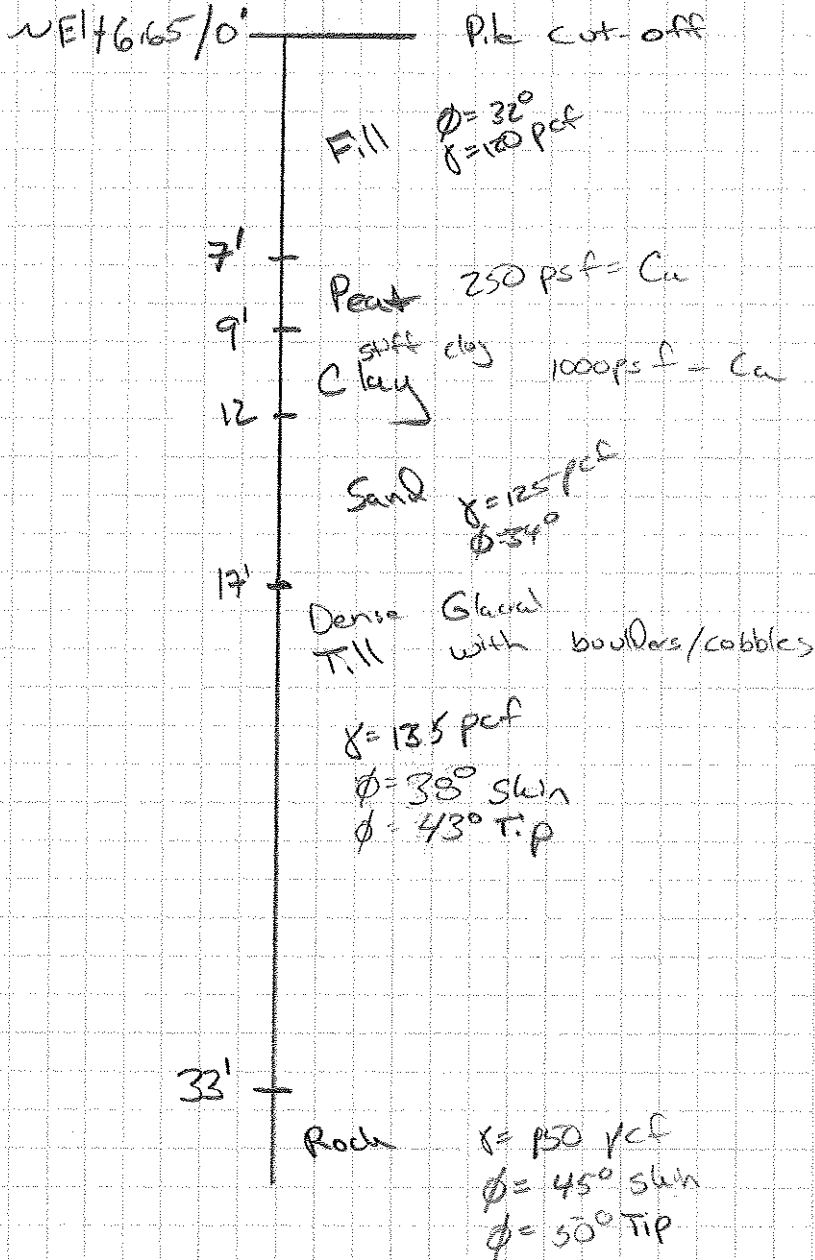 ~El+6.65/0' Pile cut-off
Fill φ= 32°
γ=120 pcf
7'
Peat 250 psf = Cu
9'
stiff clay
Clay 1000psf = Cu
12
Sand γ=125 pcf
φ=34°
17'
Dense Glacial
Till with boulders/cobbles
γ= 135 pcf
φ= 38° Skin
φ= 43° Tip
33'
Rock γ= 150 pcf
φ= 45° Skin
φ= 50° Tip